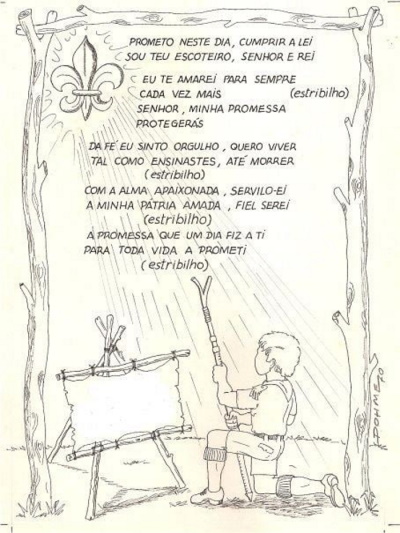 PROMETO NESTE DIA, CUMPRIR A LEI
SOU TEU ESCOTEIRO, SENHOR E REI
EU TE AMAREI PARA SEMPRE
CADA VEZ MAIS (estribilho)
SENHOR, MINHA PROMESSA
PROTEGERÁS
DA FÉ EU SINTO ORGULHO, QUERO VIVER
TAL COMO ENSINASTES, ATÉ MORRER
(estribilho)
COM A ALMA APAIXONADA, SERVILO-EI
A MINHA PÁTRIA AMADA, FIEL SEREI
(estribilho)
A PROMESSA QUE UM DIA FIZ A TI
PARA TODA VIDA A PROMETI
(estribilho)
DOHME 90